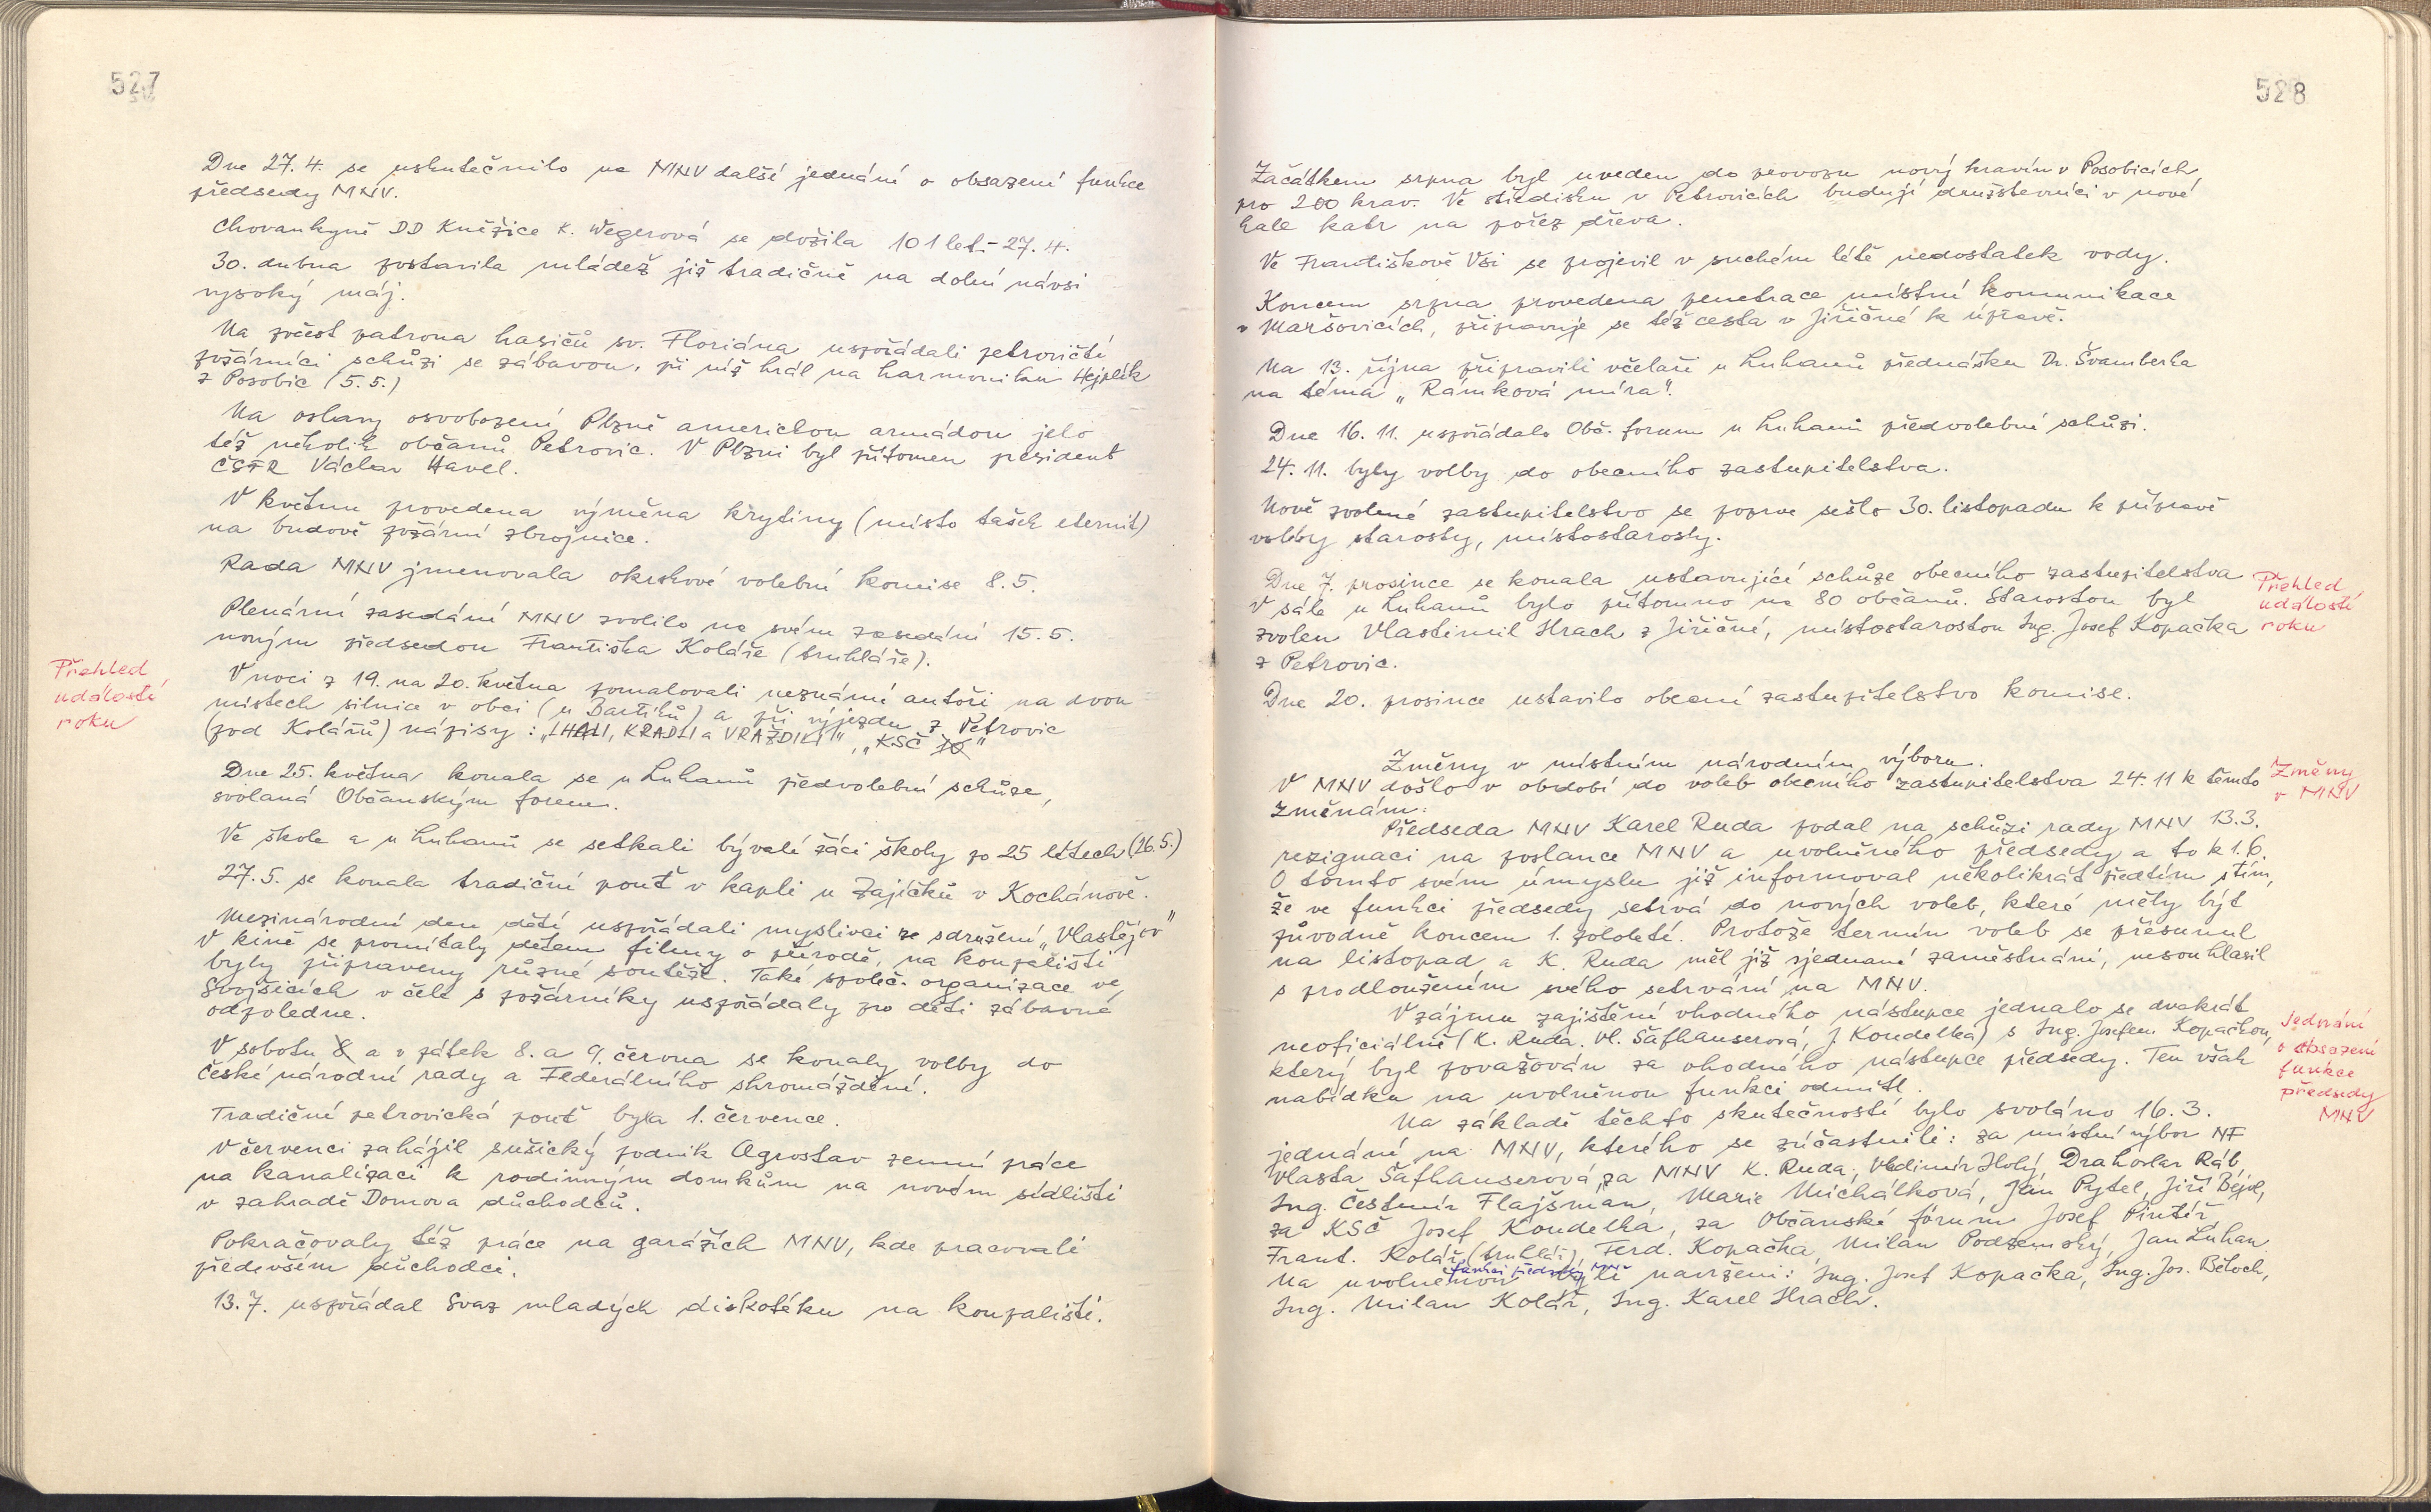 527
Dne 27.4. se uskutečnilo na MNV další jednání o obsazení funkce
předsedy MNV.
Chovankyně DD Kněžice K. Wegerová se dožila 101 let - 27.4.
30. dubna postavila mládež již tradičně na dolní návsi
vysoký máj.
Na počest patrona hasičů sv. Floriána uspořádali petrovičtí
požárníci schůzi se zábavou, při níž hrál na harmoniku Hejplík
z Posobic (5.5.)
Na oslavy osvobození Plzně americkou armádou jelo
též několik občanů Petrovic. V Plzni byl přítomen president
ČSFR Václav Havel.
V květnu provedena výměna krytiny (místo tašek eternit)
na budově požární zbrojnice.
Rada MNV jmenovala okrskové volební komise 8.5.
Plenární zasedání MNV zvolilo na svém zasedání 15.5.
novým předsedou Františka Koláře (truhláře).
Přehled
událostí
roku
V noci z 19. na 20. května pomalovali neznámí autoři na dvou
místech silnice v obci (u Bartíků) a při výjezdu z Petrovic
(pod Kolářů) nápisy: „LHALI, KRADLI a VRAŽDILI", „KSČ
Dne 25. května konala se u Luhanů předvolební schůze,
svolaná Občanským forem.
Ve škole a u Luhanů se setkali bývalí žáci školy po 25 létech (26.5.)
27.5. se konala tradiční pouť v kapli u Zajíčků v Kochánově.
Mezinárodní den dětí uspořádali myslivci ze sdružení „Vlastějov"
V kině se promítaly dětem filmy o přírodě, na koupališti
byly připraveny různé soutěže. Také společ. organizace ve
Svojšicích v čele s požárníky uspořádaly pro děti zábavné
odpoledne.
V sobotu 8 a v pátek 8. a 9. června se konaly volby do
České národní rady a Federálního shromáždění.
Tradiční petrovická pouť byla 1. července.
V červenci zahájil sušický podnik Agrostav zemní práce
na kanalizaci k rodinným domkům na novém sídlišti
v zahradě Domova důchodců.
Pokračovaly též práce na garážích MNV, kde pracovali
především důchodci.
13.7. uspořádal Svaz mladých diskotéku na koupališti.
528
Začátkem srpna byl uveden do provozu nový kravín v Posobicích,
pro 200 krav. Ve středisku v Petrovicích budují družstevníci v nové
hale katr na pořez dřeva.
Ve Františkově Vsi se projevil v suchém létě nedostatek vody.
Koncem srpna provedena penetrace místní komunikace
v Maršovicích, připravuje se též cesta v Jiřičné k úpravě.
Na 13. října připravili včelaři u Luhanů přednášku Dr. Švamberka
na téma „Rámková míra".
Dne 16.11. uspořádalo Obč. forum u Luhanů předvolební schůzi.
24.11. byly volby do obecního zastupitelstva.
Nově zvolené zastupitelstvo se poprve sešlo 30. listopadu k přípravě
volby starosty, místostarosty.
Dne 7. prosince se konala ustavující schůze obecního zastupitelstva
V sále u Luhanů bylo přítomno na 80 občanů. Starostou byl
zvolen Vlastimil Hrach z Jiřičné, místostarostou Ing. Josef Kopačka
z Petrovic.
Přehled
událostí
roku
Dne 20. prosince ustavilo obecní zastupitelstvo komise.
Změny v místním národním výboru.
Změny
v MNV
V MNV došlo v období do voleb obecního zastupitelstva 24.11 k těmto
změnám:
Předseda MNV Karel Ruda podal na schůzi rady MNV 13.3.
rezignaci na poslance MNV a uvolněného předsedy a to k 1.6.
O tomto svém úmyslu již informoval několikrát předtím s tím,
že ve funkci předsedy setrvá do nových voleb, které měly být
původně koncem 1. pololetí. Protože termín voleb se přesunul
na listopad a K. Ruda měl již sjednané zaměstnání, nesouhlasil
s prodloužením svého setrvání na MNV.
V zájmu zajištění vhodného nástupce jednalo se dvakrát
neoficiálně (K. Ruda, Vl. Šafhauserová, J. Koudelka) s Ing. Josefem Kopačkou,
který byl považován za vhodného nástupce předsedy. Ten však
nabídku na uvolněnou funkci odmítl.
Jednání
o obsazení
funkce
předsedy
MNV
Na základě těchto skutečností bylo svoláno 16.3.
jednání na MNV, kterého se zúčastnili: za místní výbor NF
Vlasta Šafhauserová, za MNV K. Ruda, Vladimír Holý, Drahoslav Ráb,
Ing. Čestmír Flajšman, Marie Michálková, Ján Pytel, Jiří Bejvl,
za KSČ Josef Koudelka, za Občanské fórum Josef Pintíř,
Frant. Kolář (truhlář), Ferd. Kopačka, Milan Podzemský, Jan Luhan.
Na uvolněnou funkci předsedy MNV byli navrženi: Ing. Josef Kopačka, Ing. Jos. Běloch,
Ing. Milan Kolář, Ing. Karel Hrach.